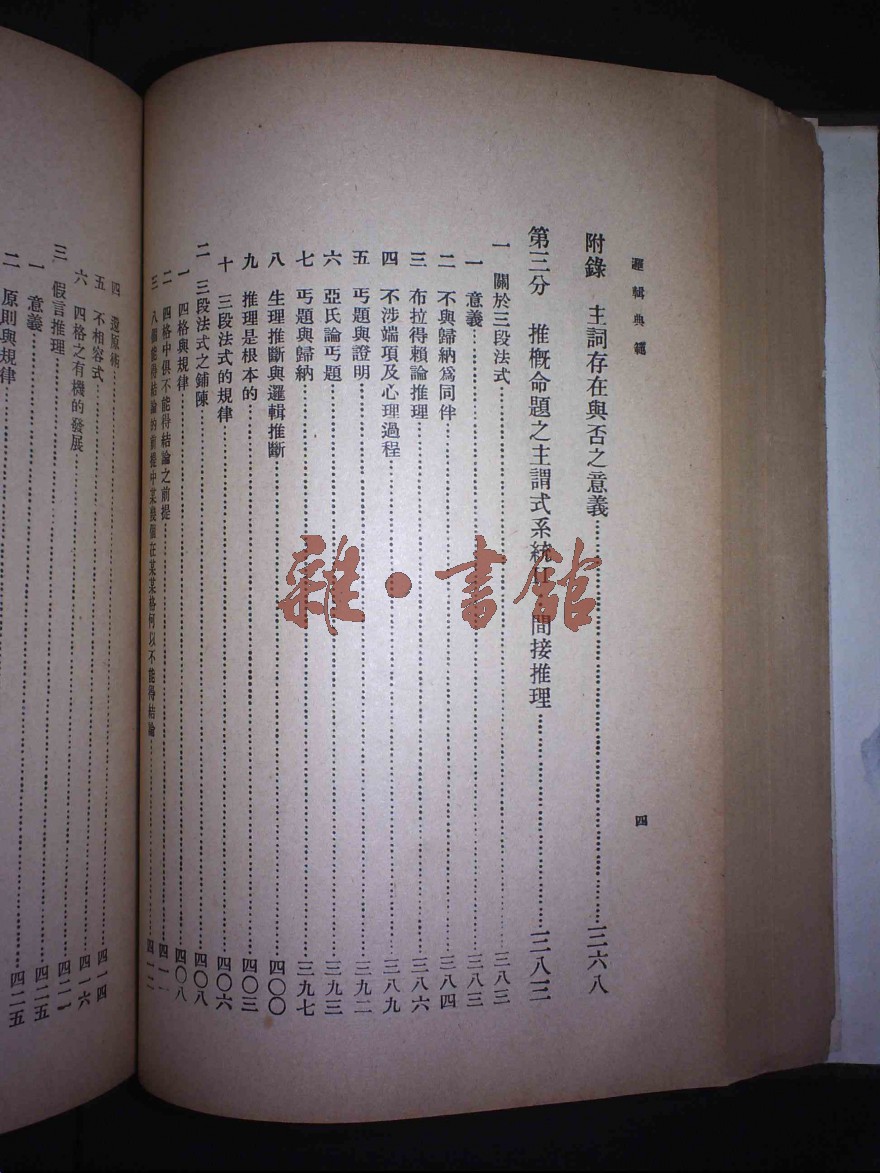 邏輯典範
四
附錄 主詞存在與否之意義……三六八
第三分 推概命題之主謂式系統II 間接推理……三八三
一 關於三段法式……三八三
一 意義……三八三
二 不與歸納爲同伴……三八四
三 布拉得賴論推理……三八六
四 不涉端項及心理過程……三八九
五 丐題與證明……三九二
六 亞氏論丐題……三九三
七 丐題與歸納……三九七
八 生理推斷與邏輯推斷……四〇〇
九 推理是根本的……四〇三
十 三段法式的規律……四〇六
二 三段法式之鋪陳……四〇八
一 四格與規律……四〇八
二 四格中俱不能得結論之前提……四一
三 八個能得結論的前提中某幾個在某某格何以不能得結論……四一二
四 還原術……四一四
五 不相容式……四一六
六 四格之有機的發展……四二一
三 假言推理……四二五
一 意義……四二五
二 原則與規律
雜·書館